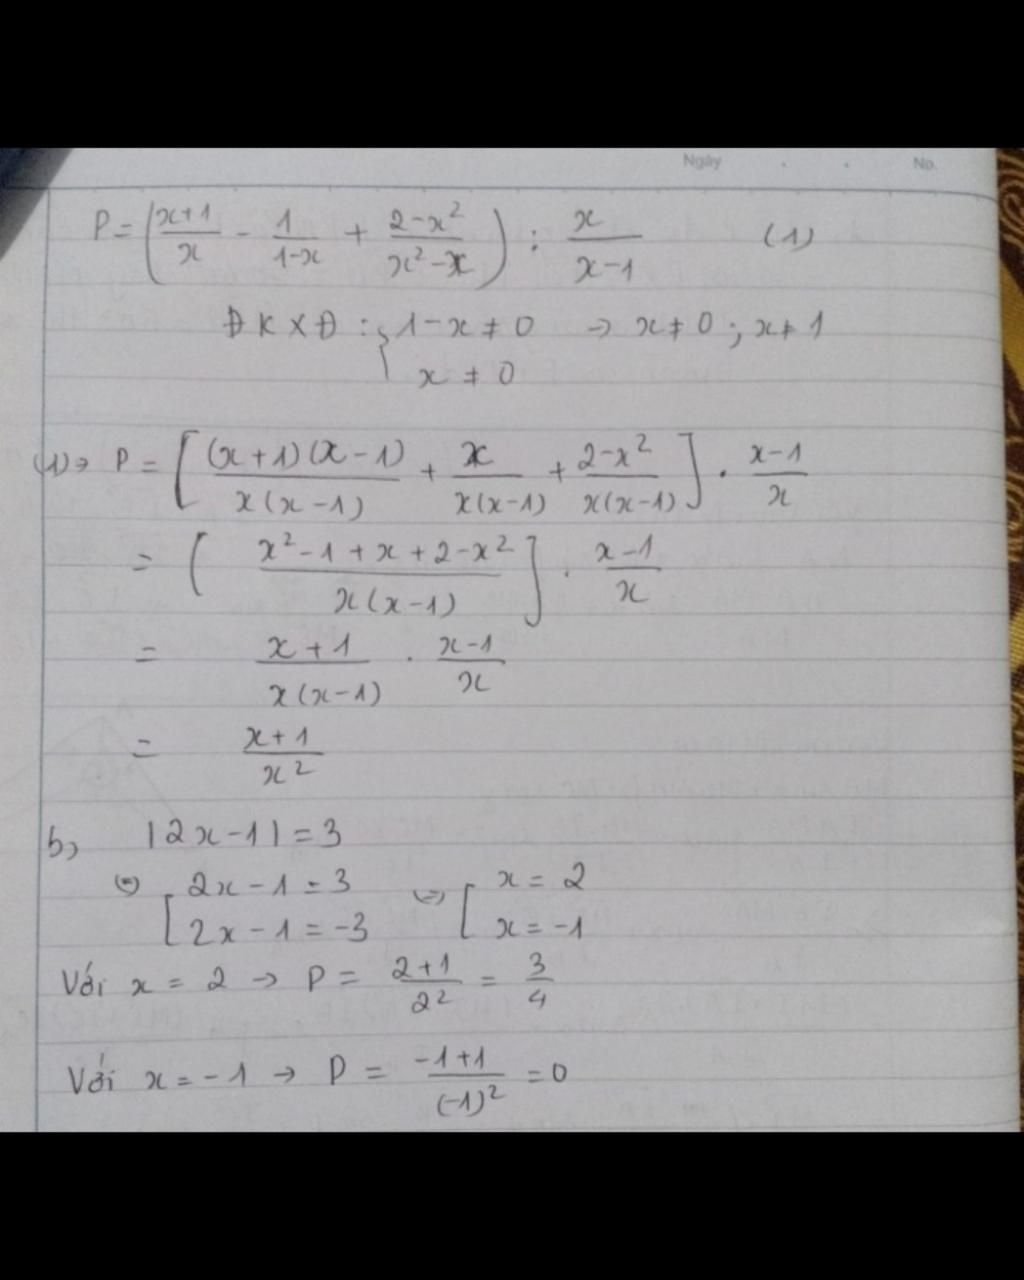 Ngày . . No.
P = ( (x+1)/x - 1/(1-x) + (2-x²)/(x²-x) ) : x/(x-1) (1)
ĐKXĐ : { 1-x ≠ 0 → x ≠ 0 ; x ≠ 1
x ≠ 0
(1) → P = [ (x+1)(x-1)/x(x-1) + x/x(x-1) + 2-x²/x(x-1) ] . x-1/x
= [ x²-1+x+2-x²/x(x-1) ] . x-1/x
= x+1/x(x-1) . x-1/x
= x+1/x²
b, |2x-1| = 3
⇔ [ 2x-1 = 3 ⇔ [ x = 2
2x-1 = -3 x = -1
Với x = 2 → P = 2+1/2² = 3/4
Với x = -1 → P = -1+1/(-1)² = 0